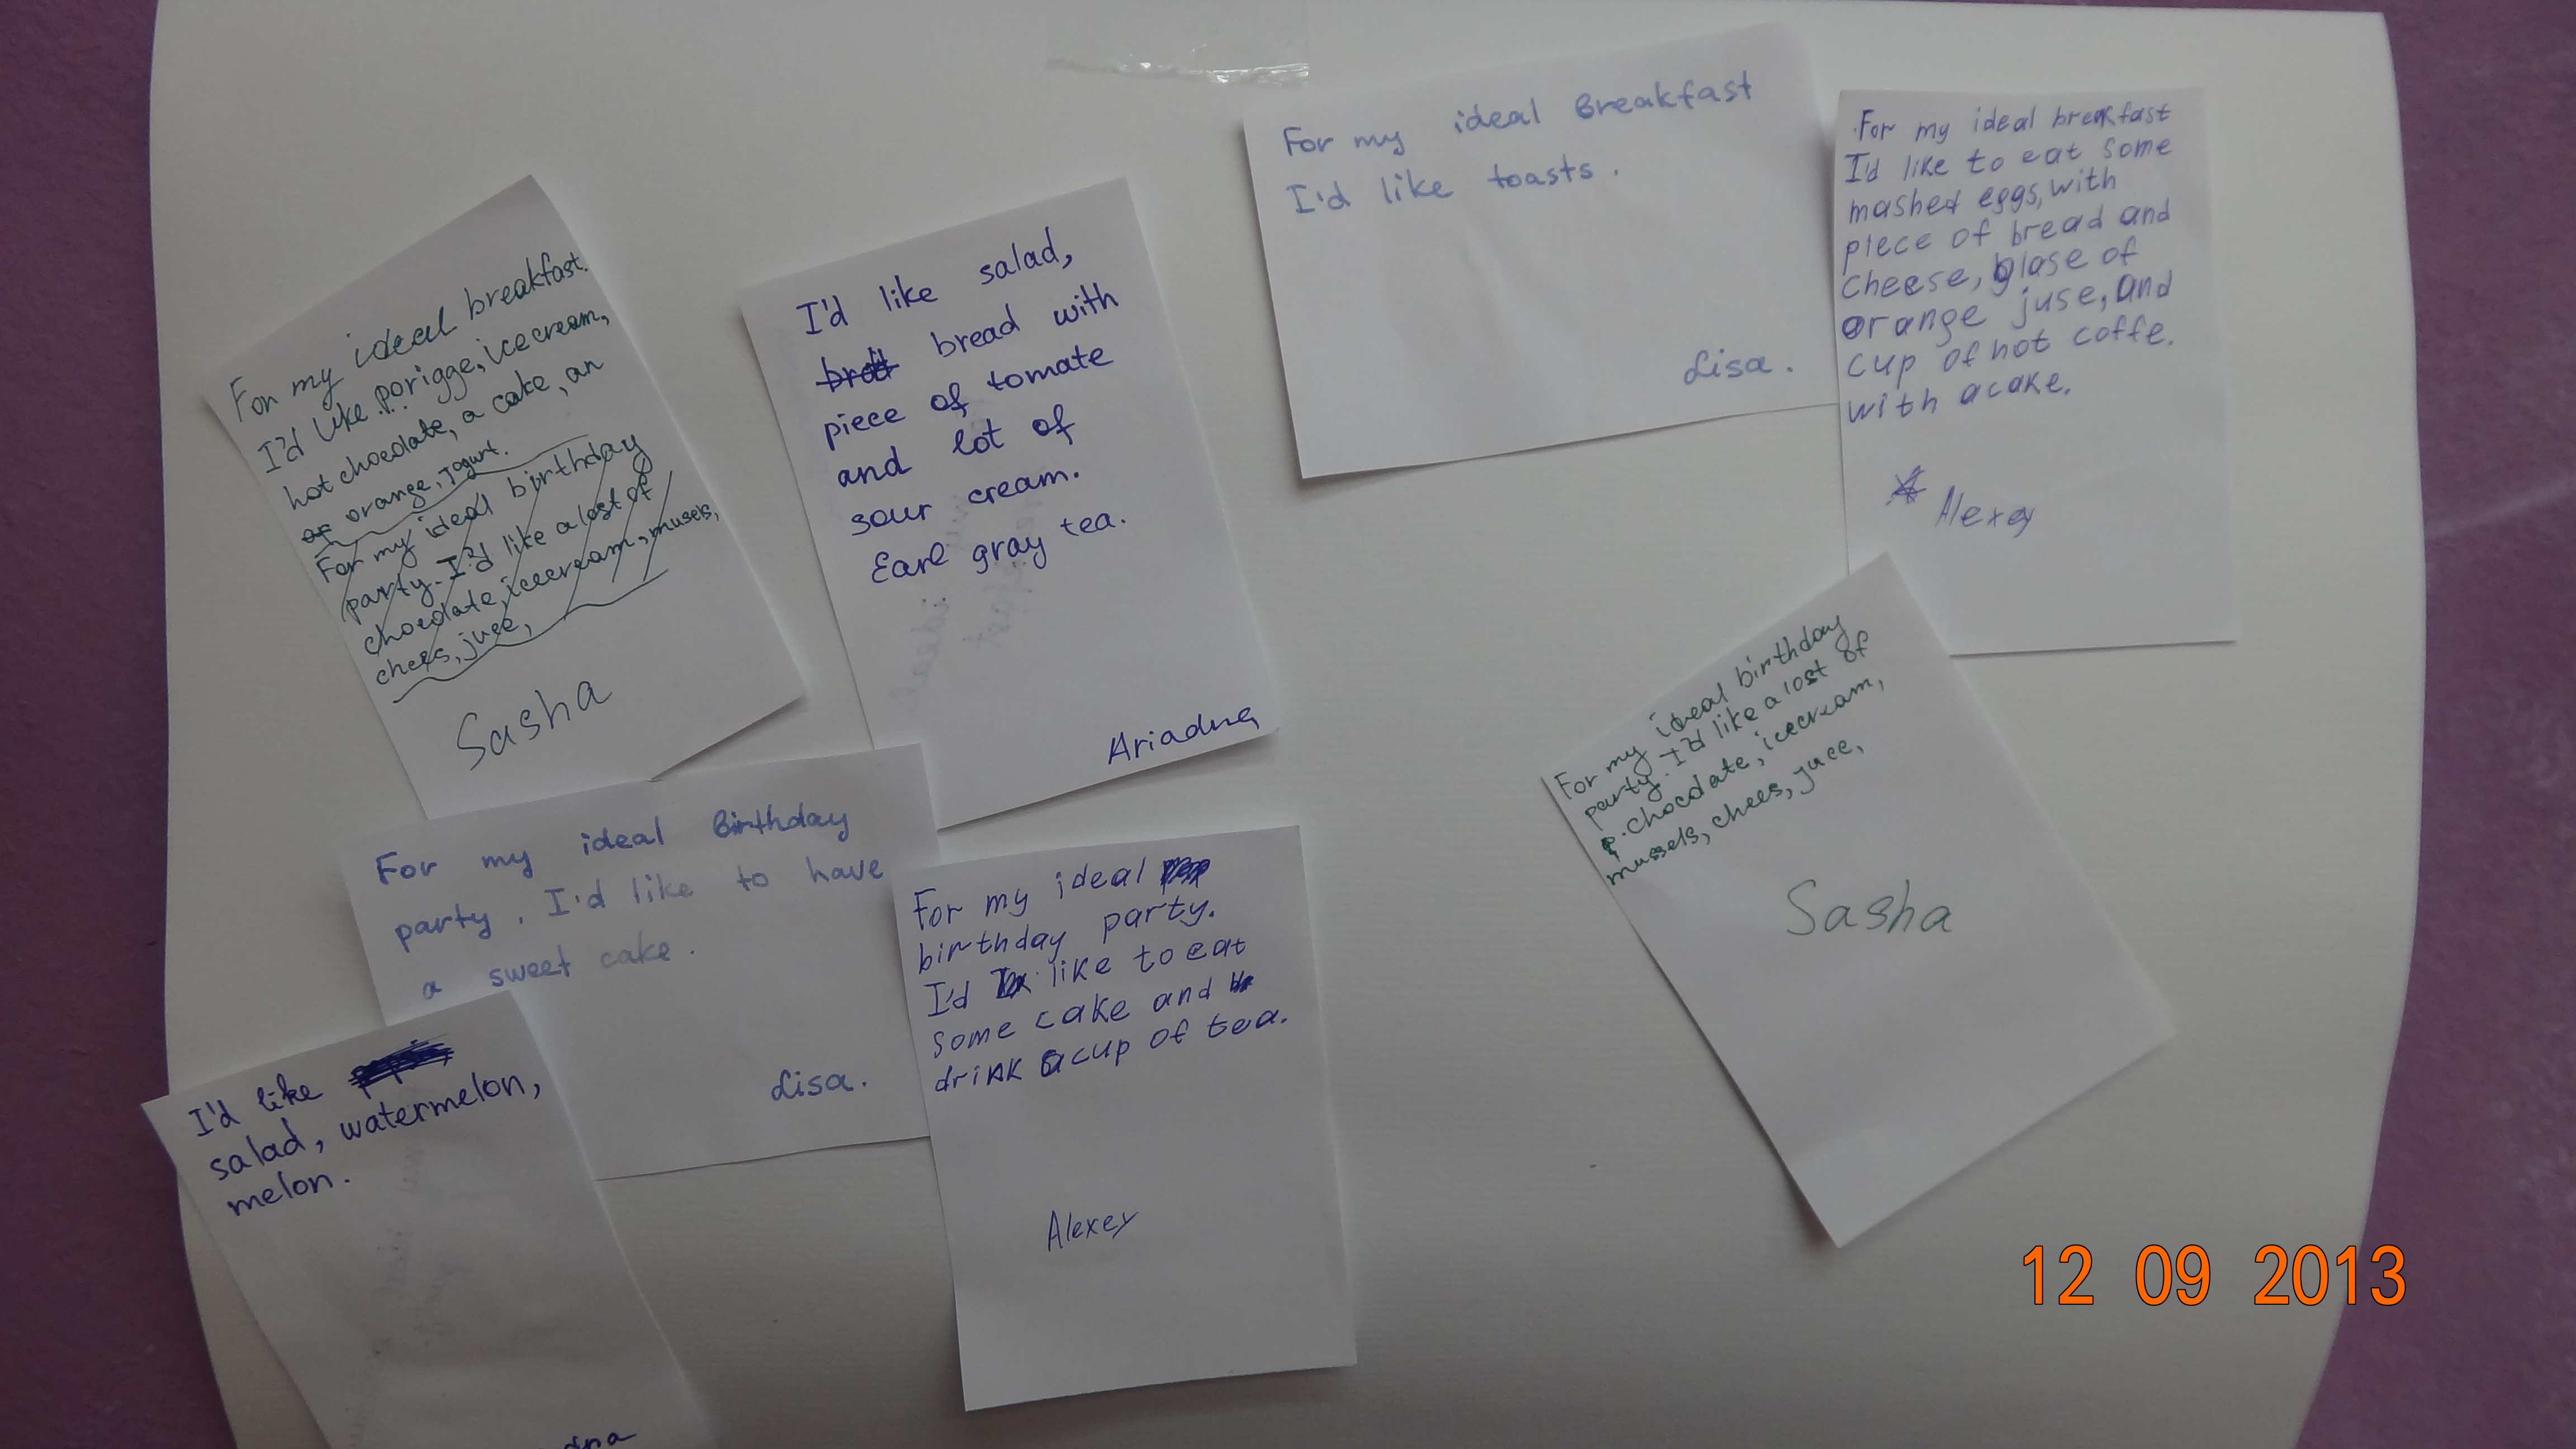 For my ideal breakfast.
I'd like porigge, icecream,
hot chocolate, a cake, an
or orange, jogurt.
For my ideal birthday
party. I'd like a lost of
chocolate, icecream, musels,
chees, juce,
Sasha
I'd like salad,
bread with
piece of tomate
and lot of
sour cream.
Earl gray tea.
Ariadna
For my ideal Breakfast
I'd like toasts.
Lisa.
For my ideal breakfast
I'd like to eat some
mashed eggs, with
piece of bread and
cheese, glase of
orange juse, and
cup of hot coffe.
with a cake.
Alexey
For my ideal birthday
party. I'd like a lost of
chocolate, icecream,
mussels, chees, juce,
Sasha
For my ideal Birthday
party. I'd like to have
a sweet cake.
Lisa.
For my ideal
birthday party.
I'd like to eat
some cake and
drink a cup of tea.
Alexey
I'd like
salad, watermelon,
melon.
dna
12 09 2013